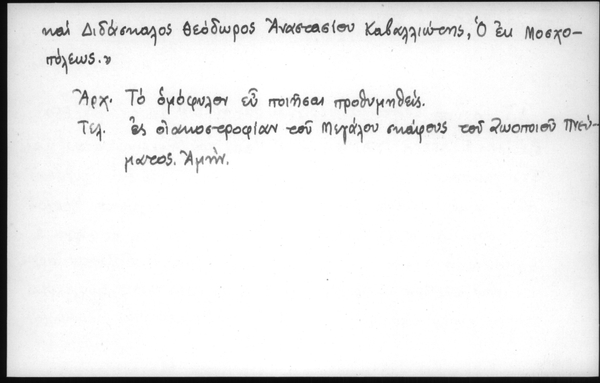 καί Διδάσκαλος Θεόδωρος Ἀναστασίου Καβαλλιώτης, Ὁ ἐκ Μοσχο-
πόλεως.»
Ἀρχ. Τό ὁμόφυλον εὖ ποιῆσαι προθυμηθείς.
Τελ. ἐς οἰακοστροφίαν τοῦ Μεγάλου σκάφους τοῦ Ζωοποιοῦ Πνεύ-
ματος. Ἀμήν.